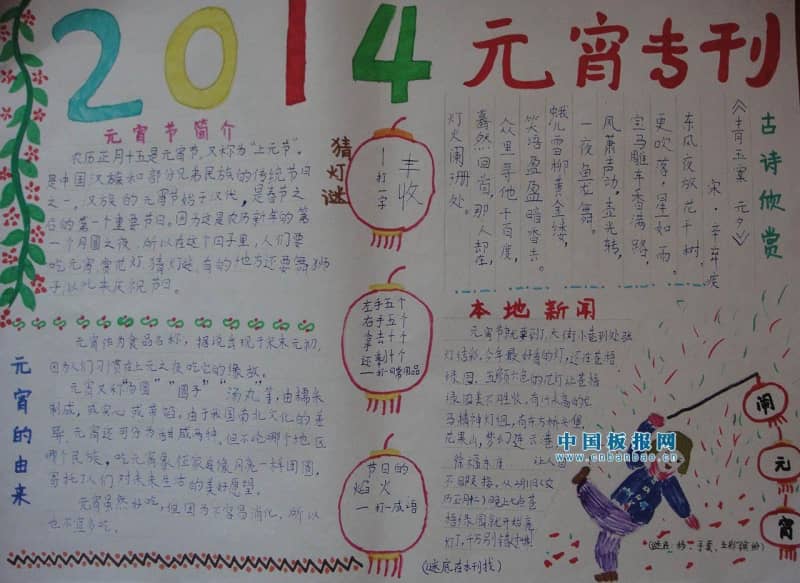 2014
元宵专刊
元宵节简介
农历正月十五是元宵节,又称为"上元节"。
是中国汉族和部分兄弟民族的传统节日
之一,汉族的元宵节始于汉代,是春节之
后的第一个重要节日。因为这是农历新年的第
一个月圆之夜,所以在这个日子里,人们要
吃元宵赏花灯猜灯谜,有的地方还要舞狮
子,以此来庆祝节日。
元宵的由来
元宵作为食品名称,据说出现于宋末元初,
因为人们习惯在上元之夜吃它的缘故。
元宵又称"汤圆""圆子""汤丸"等,由糯米
制成,或实心 或带馅。由于我国南北文化的差
异,元宵还可分为甜咸两种。但不论哪个地区
哪个民族,吃元宵象征家庭像月亮一样团圆,
寄托了人们对未来生活的美好愿望。
元宵虽然好吃,但因为不容易消化,所以
也不宜多吃。
猜灯谜
丰收
—打一字
左手五个
右手五个
拿去十个
还剩十个
—打一日常用品
节日的
焰火
—打一成语
(谜底在本刊找)
古诗欣赏
《青玉案 元夕》
宋·辛弃疾
东风夜放花千树。
更吹落,星如雨。
宝马雕车香满路。
风萧声动,壶光转,
一夜鱼龙舞。
蛾儿雪柳黄金缕,
笑语盈盈暗香去。
众里寻他千百度,
蓦然回首,那人却在,
灯火阑珊处。
本地新闻
元宵节就要到了,大街小巷到处张
灯结彩,今年最好看的灯,还在苍梧
绿园,五颜六色的花灯让苍梧
花果山,
让人
不日暇接,从明日(农
历正月
梧绿园就开始亮
灯了,千万别错过哦
中国板报网
www.cnbanbao.cn
闹
元
宵